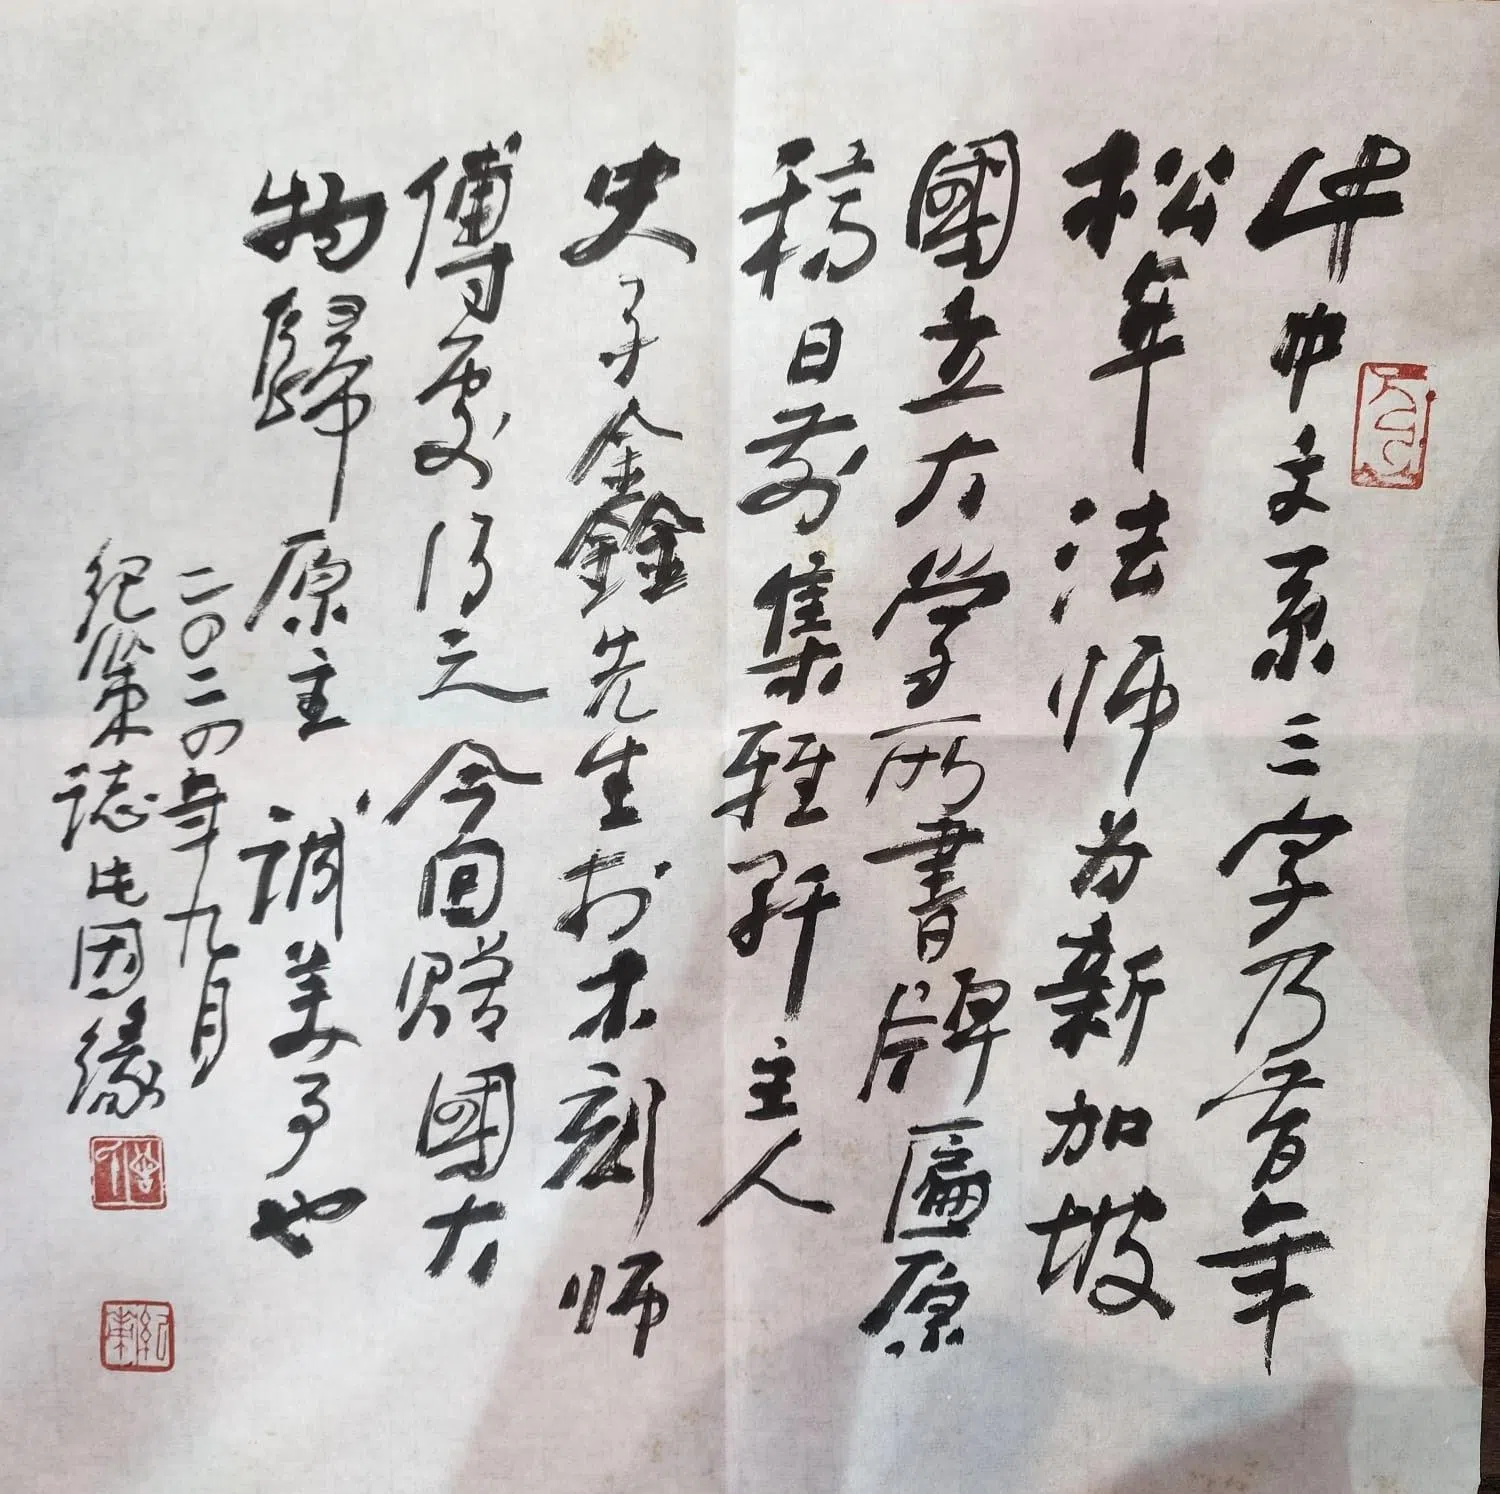 此中文系三字乃昔年
松年法师为新加坡
國立大学所書牌匾原
稿日前集雅斋主人
史子鑫先生於木刻师
傅處得之今回赠國大
物歸原主诚美事也
二〇二四年九月
纪策誌此因缘